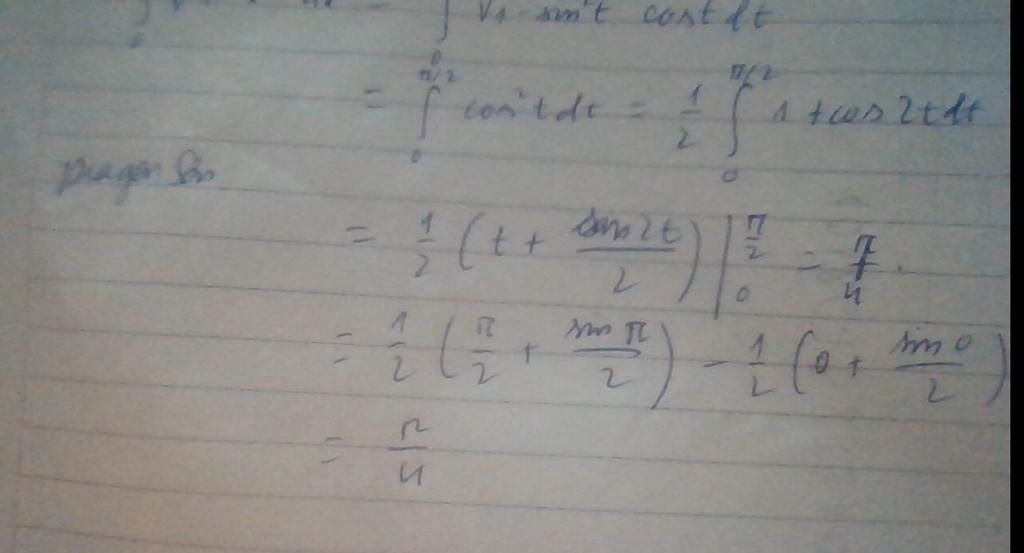 ∫ √1 - sin²t cos t dt
= ∫₀^{π/2} cos²t dt = 1/2 ∫₀^{π/2} 1 + cos 2t dt
= 1/2 (t + sin 2t/2) |₀^{π/2} = π/4.
= 1/2 (π/2 + sin π/2) - 1/2 (0 + sin 0/2)
= π/4